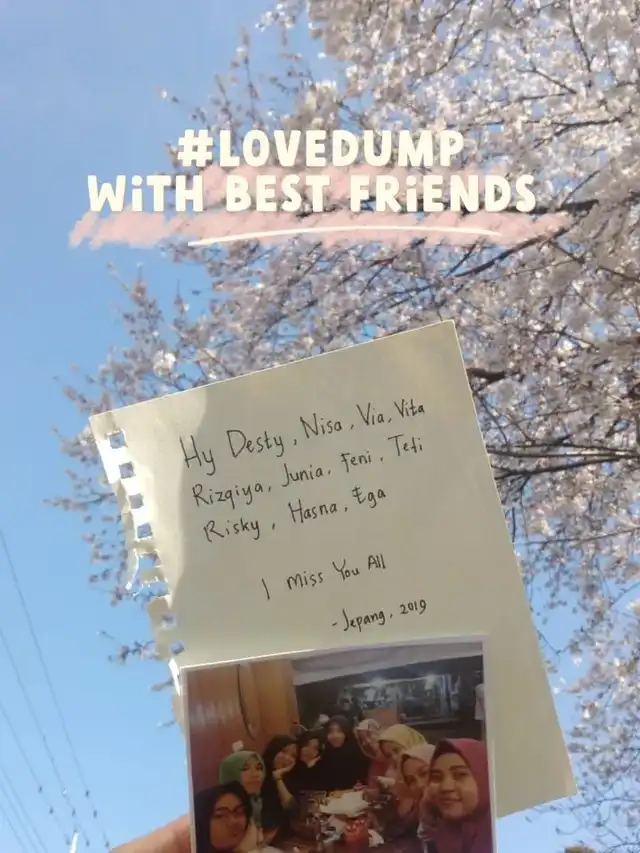 #LOVEDUMP
WiTH BEST FRiENDS
Hy Desty, Nisa, Via, Vita
Rizqiya, Junia, Feni, Tefi
Risky, Hasna, Ega
I miss You All
-Jepang, 2019